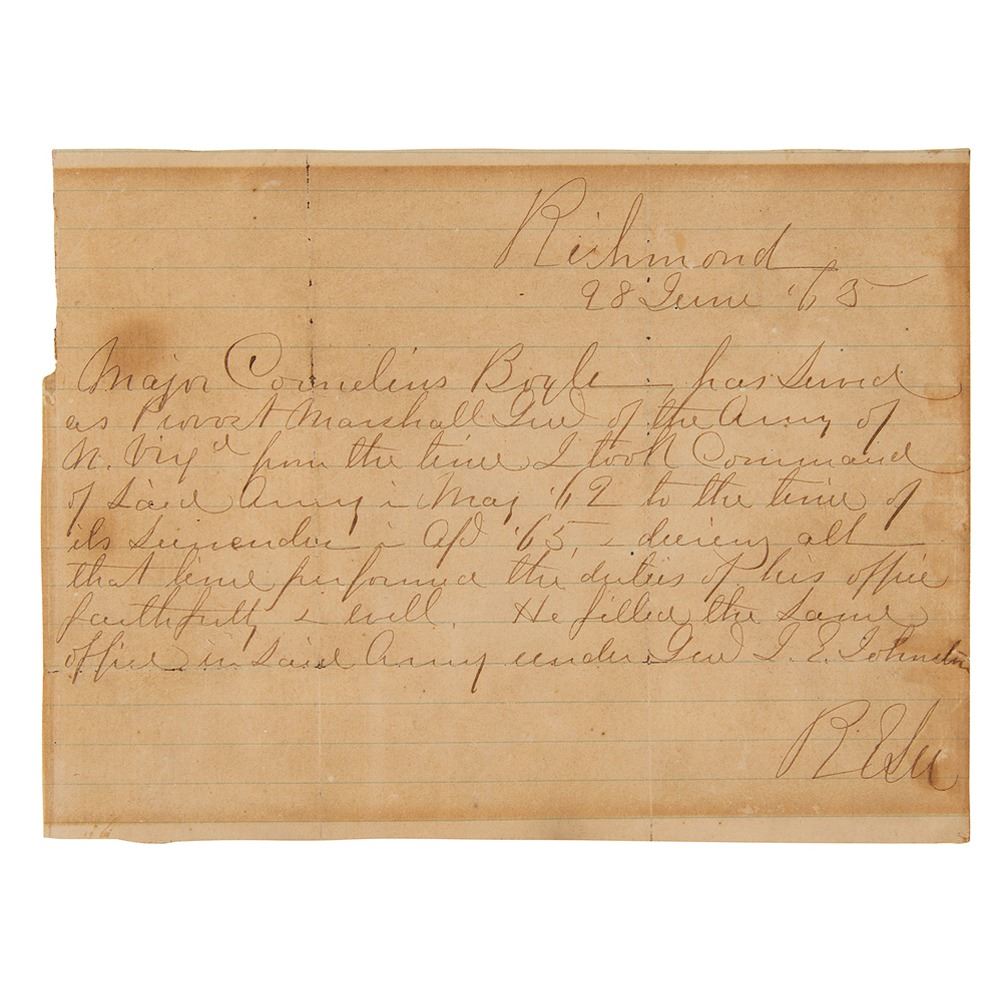 Richmond
28 June '65
Major Cornelius Boyle has served
as Provost Marshall Genl of the Army of
N. Virga from the time I took Command
of said Army in May '62 to the time of
its surrender in Apl '65, & during all
that time performed the duties of his office
faithfully & well. He filled the same
office in said Army under Genl J. E. Johnston
R E Lee